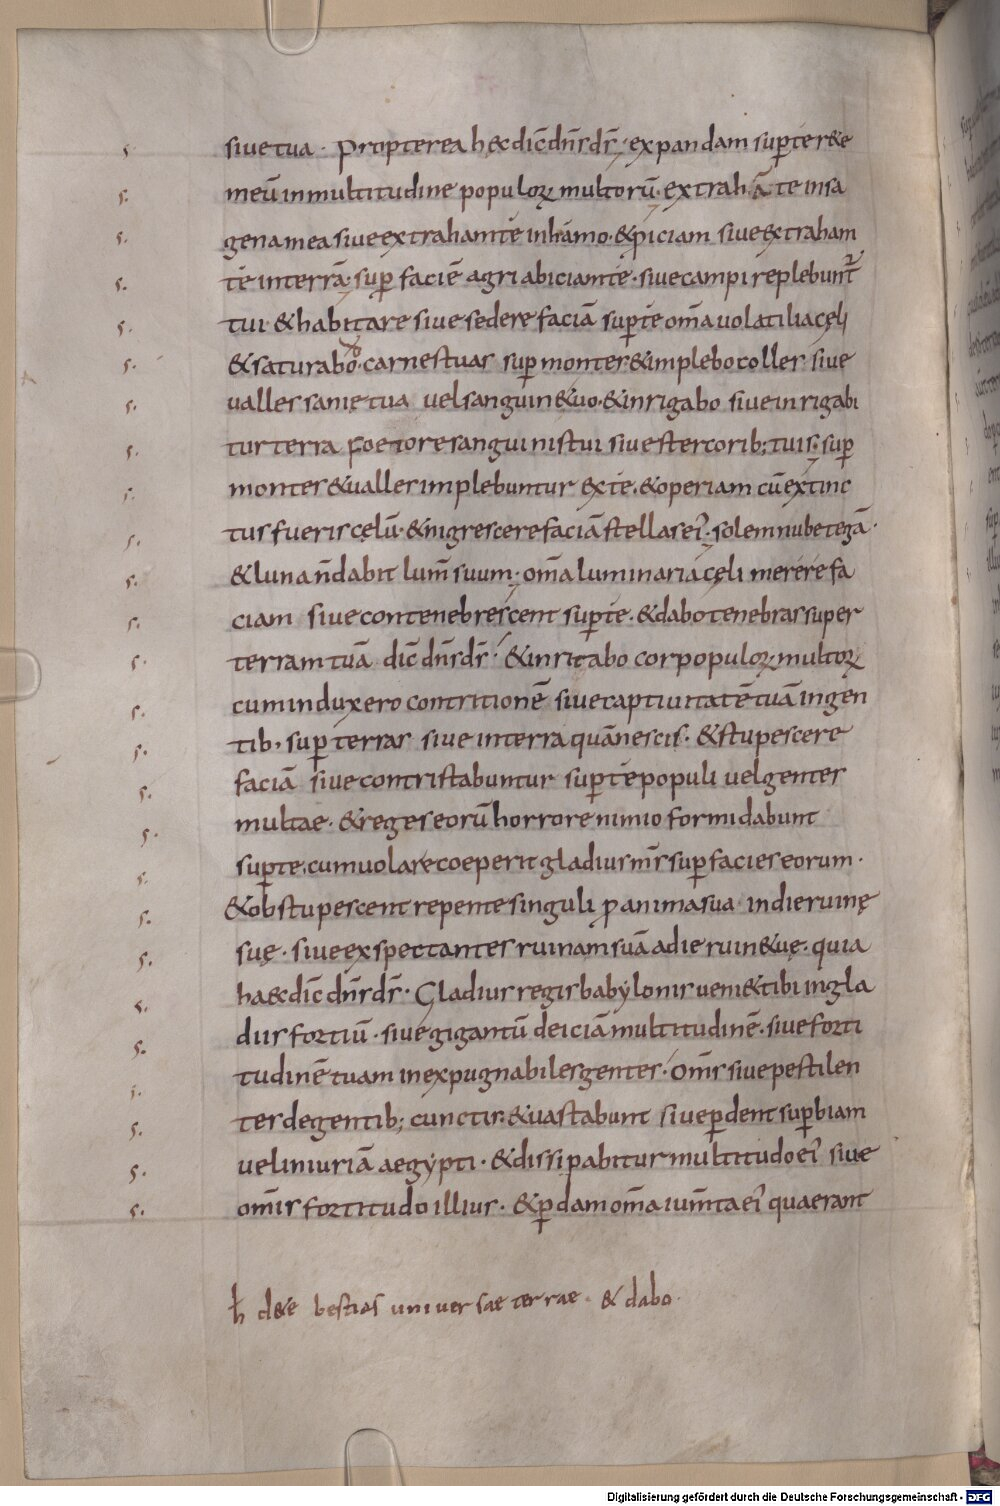 siue tua · Propterea hęc dic̄ dn̄s ds̄ · expandam sup te r&e
meū in multitudine populoꝝ multorū · & extrahā te in sa
gena mea siue extraham te in hamo · & piciam siue extraham
te in terrā · sup faciē agri abiciam te · siue campi replebunt̄
tui · & habitare siue sedere faciā sup te om̄a uolatilia cęli
& saturabo · carnes tuas sup montes · & implebo colles siue
ualles sanię tua uel sanguin& uo · & inrigabo siue inrigabi
tur terra foetore sanguinis tui siue stercorib; tuis · sup
montes & ualles implebuntur ex te · & operiam cū extinc
tus fueris cęlū · & nigrescere faciā stellas ei᾿ · solem nube tegā ·
& luna n̄ dabit lum̄ suum · om̄a luminaria cęli merere fa
ciam siue contenebrescent sup te · & dabo tenebras super
terram tuā dic̄ dn̄s ds̄ · & inritabo cor populoꝝ multoꝝ
cum induxero contritionē siue captiuitatē tuā in gen
tib · sup terras siue in terra quā nescis · & stupescere
faciā siue contristabuntur sup te populi uel gentes
multae · & reges eorū horrore nimio formidabunt
sup te, cum uolare coeperit gladius m̄s sup facies eorum ·
& obstupescent repente singuli ꝓ anima sua in die ruinę
suę · siue exspectantes ruinam suā a die ruin& uę · quia
haec dic̄ dn̄s ds̄ · Gladius regis babylonis ueni& tibi in gla
diis fortiū · siue gigantū deiciā multitudinē · siue forti
tudinē tuam inexpugnabiles gentes · om̄s siue pestilen
tes de gentib; cunctis · & uastabunt siue ꝑdent supbiam
uel iniuriā aegypti · & dissipabitur multitudo ei᾿ siue
om̄is fortitudo illius · & ꝑdam om̄a ium̄ta ei᾿ quae erant
ħ d&e bestias uniuersae terrae · & dabo ·
Digitalisierung gefördert durch die Deutsche Forschungsgemeinschaft - DFG